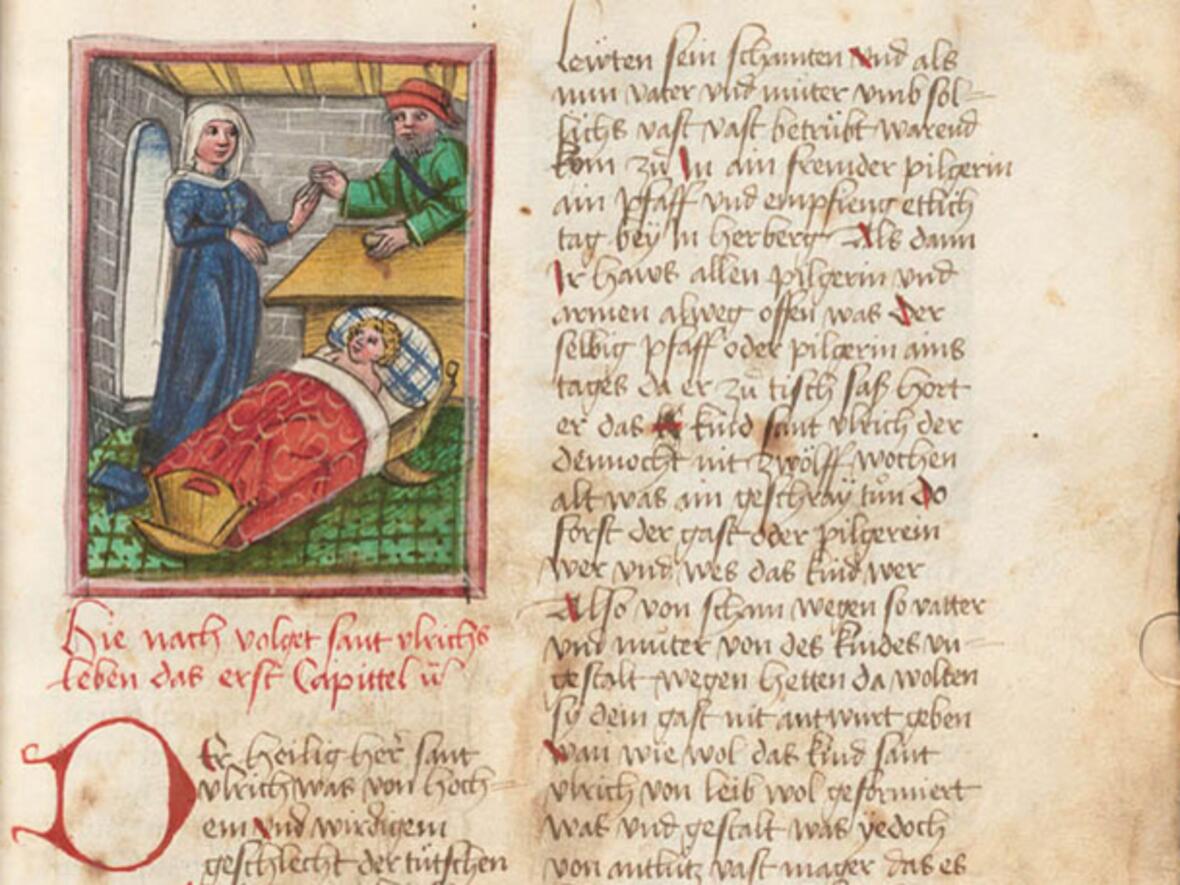 Hie nach volget sant vlrichs
leben das erst Capittel
Der heilig her sant
vlrich was von hoch-
em vnd wirdigem
geschlecht der tütschen
Lewten sein schamten vnd als
nun vater vnd muter vmb sol-
lichs vast vast betrübt warend
kom zu In ain fremder pilgerin
ain pfaff vnd empfieng etlich
tag bey In herberg Als dann
Ir haws allen pilgerin vnd
armen alweg offen was der
selbig pfaff oder pilgerin ains
tages da er zu tisch saß hort
er das kind sant vlrich der
dennocht nit zwölff wochen
alt was ain geschray tun do
forst der gast oder pilgerein
wer vnd wes das kind wer
Also von scham wegen so vatter
vnd muter von des kindes vn-
gestalt wegen hetten da wolten
sy dem gast nit antwurt geben
wan wie wol das kind sant
vlrich von leib wol geformiert
was vnd gestalt was yedoch
von antlütz vast mager das es